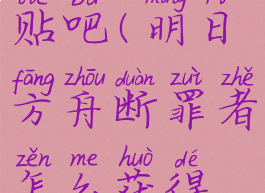 贴吧(明日
fāng zhōu duàn zuì zhě
方舟断罪者
zěn me huò dé
怎么获得